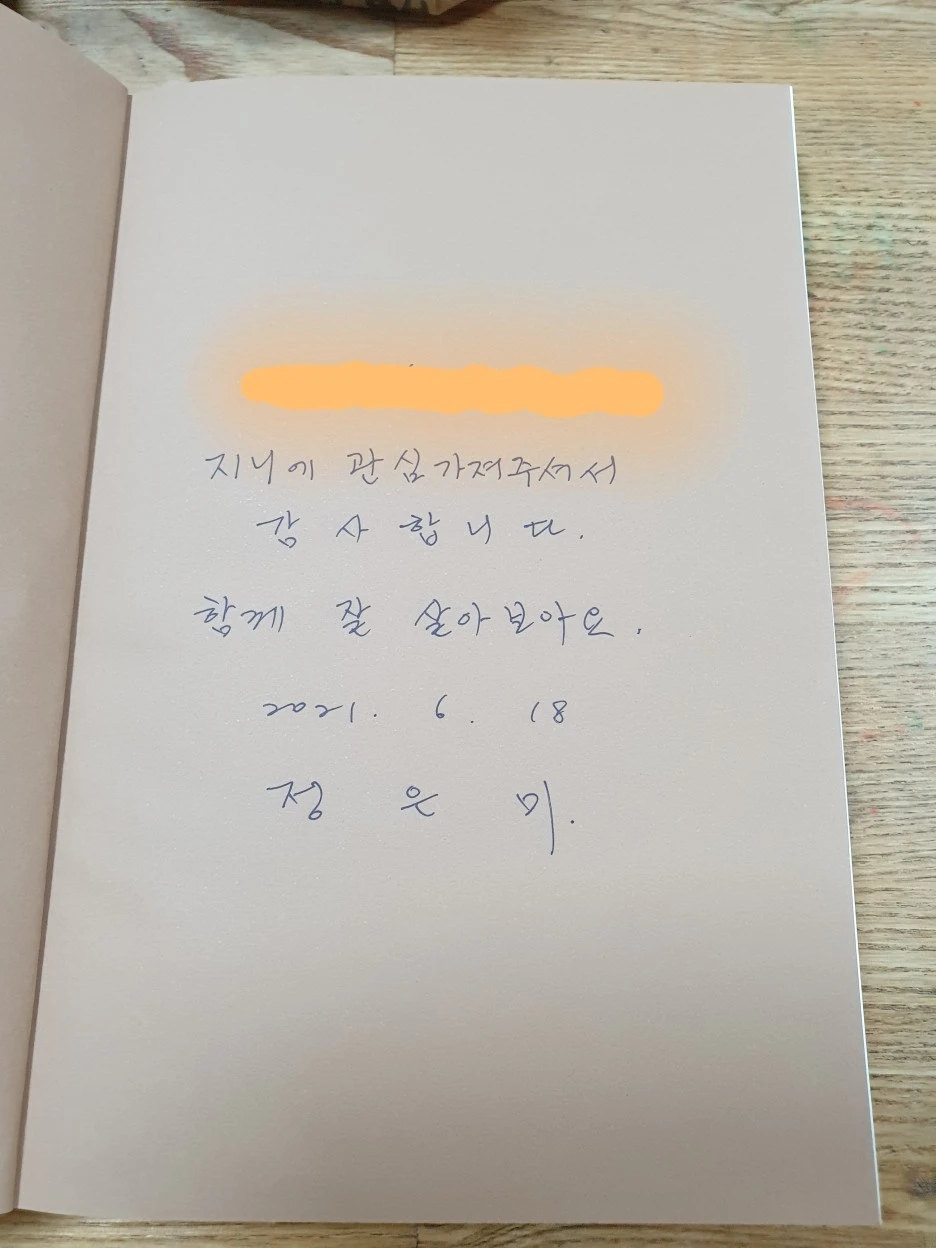 지니에 관심가져주셔서
감사합니다.
함께 잘 살아보아요.
2021. 9. 18
정은미.